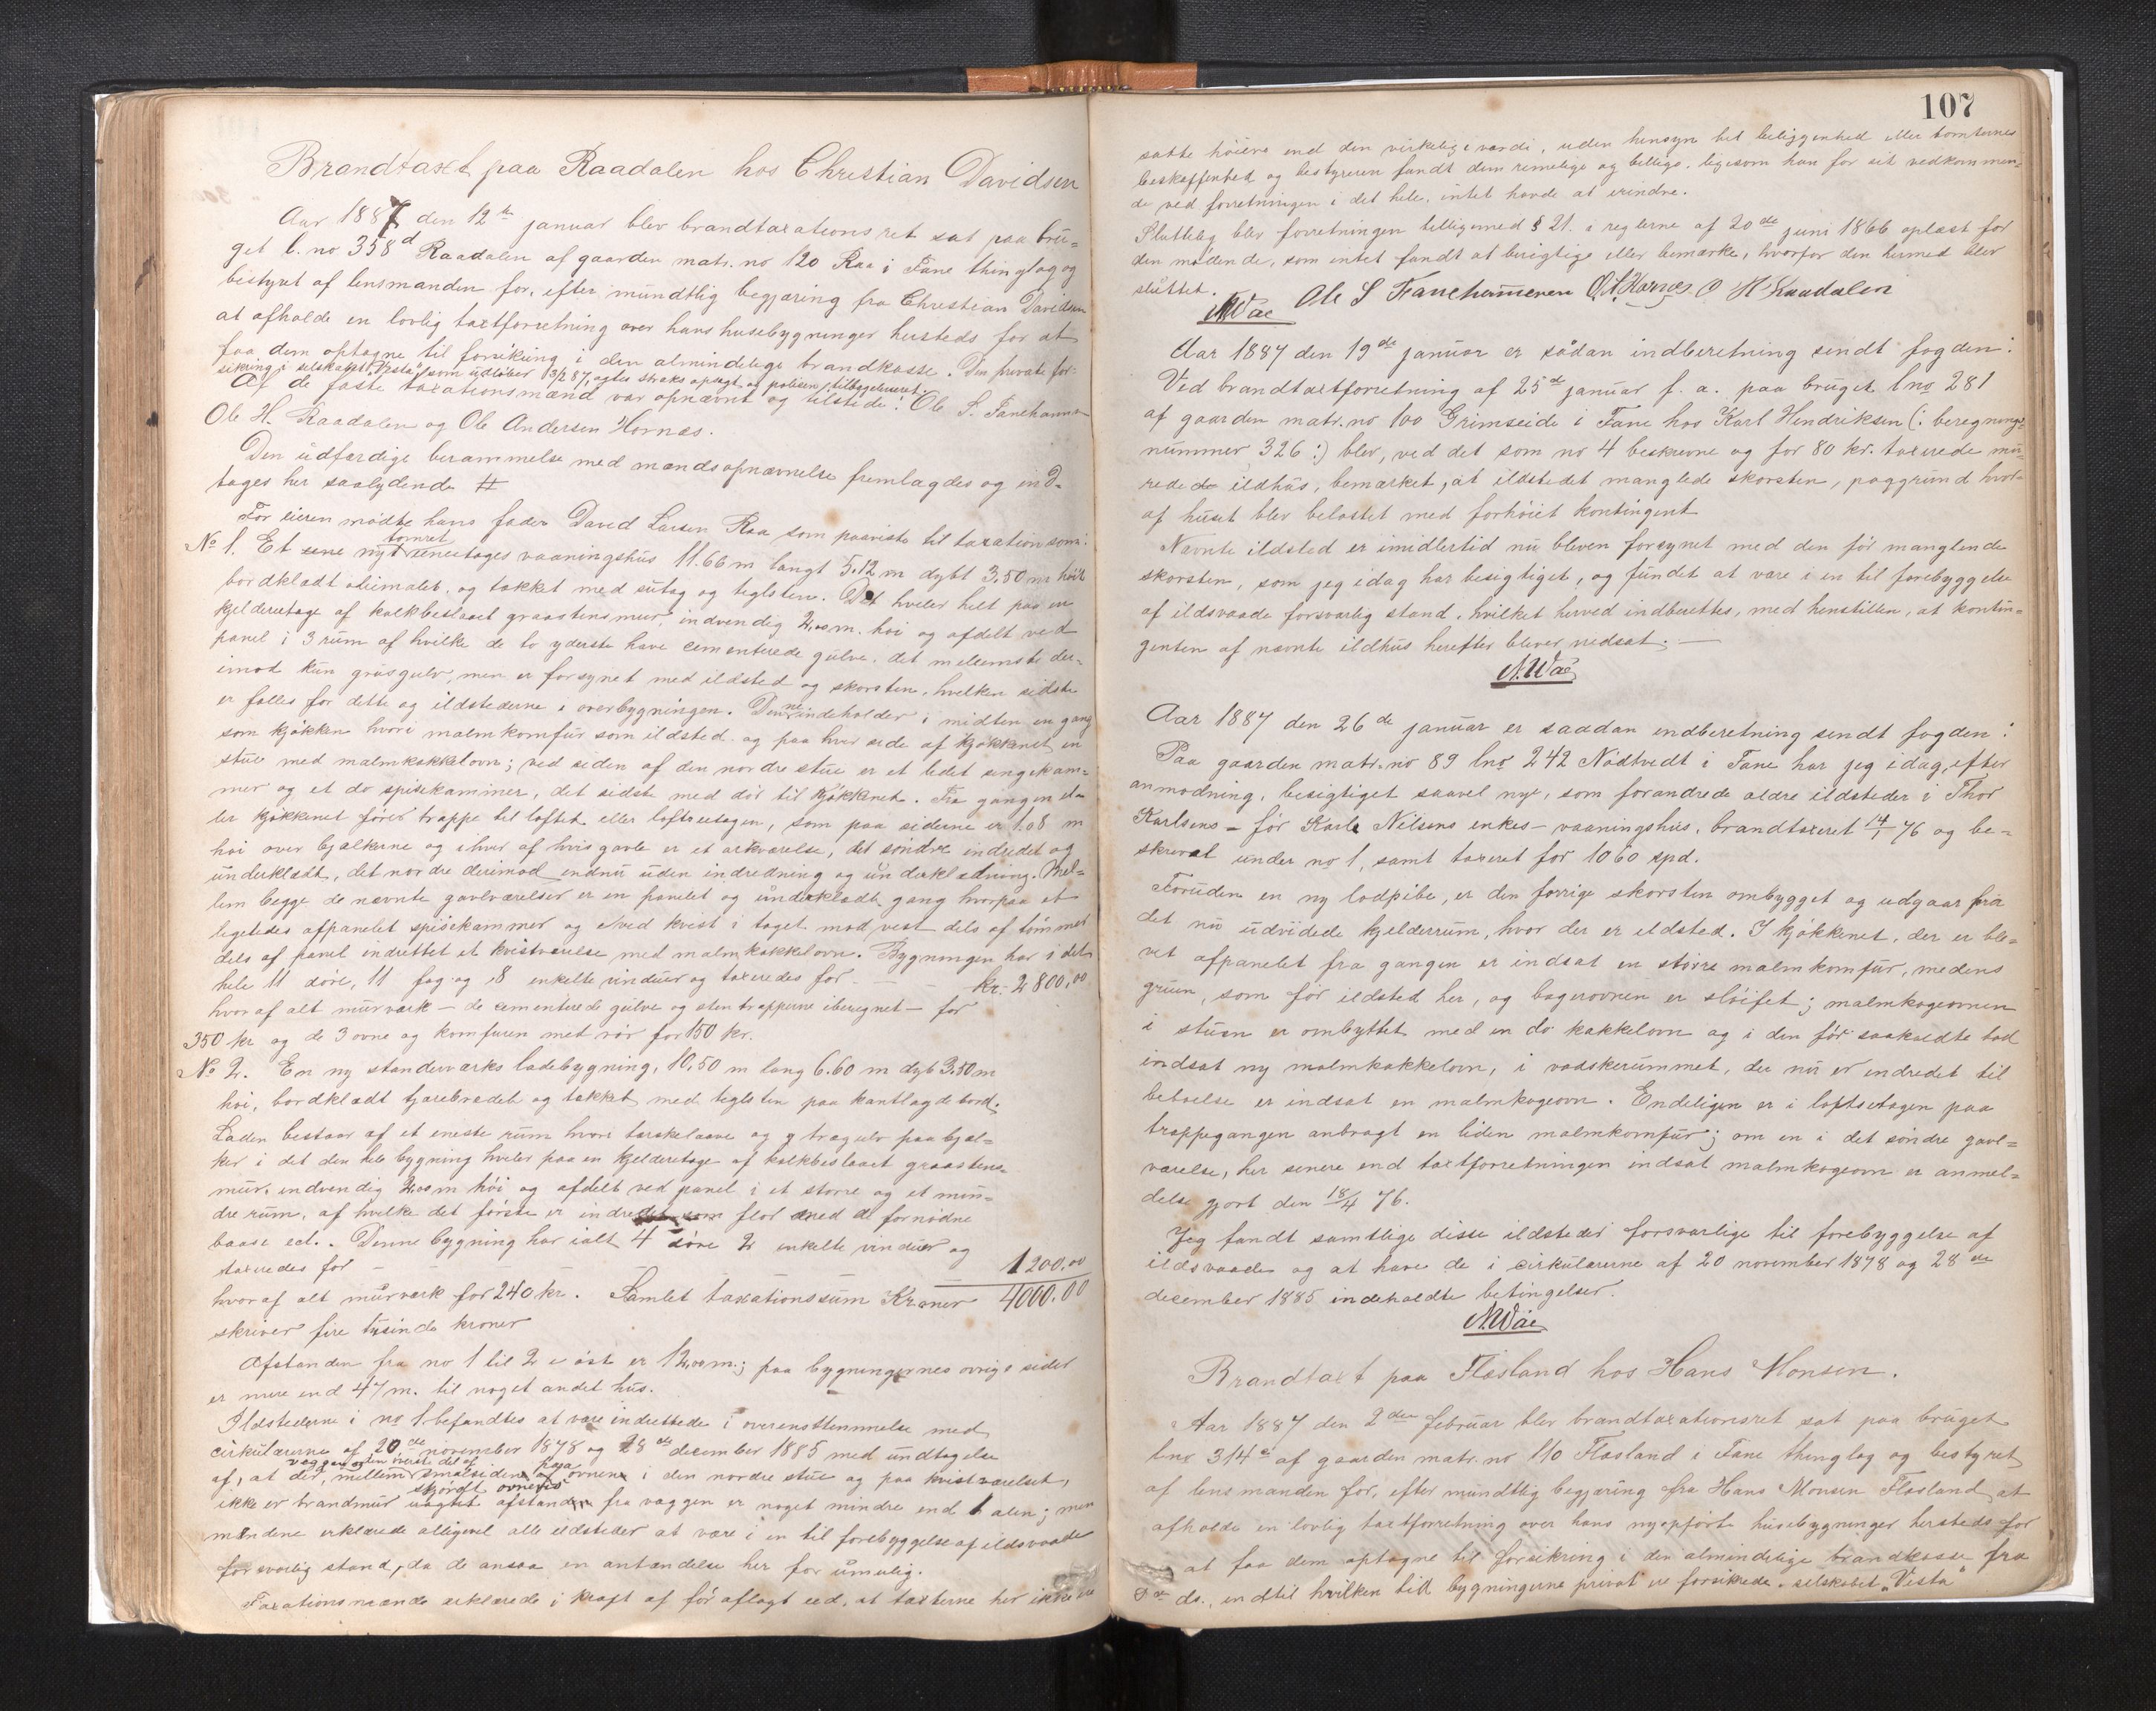 Brandtaxt paa Raadalen hos Christian Davidsen
Aar 1887 den 12te januar blev brandtaxationsret sat paa bru-
get l. no 358d Raadalen af gaarden matr. no 120 Raa i Fane thinglag og
bestyret af lensmanden for, efter mundtlig begjæring fra Christian Davidsen
at afholde en lovlig taxtforretning over hans husebygninger hersteds for at
faa dem optagne til forsikring i den almindelige brandkasse. Den private for-
sikring i selskabet "Vesta" som udløber 13/2 87, agtes straks opsagt og polisen tilbageleveret.
Af de faste taxationsmænd var opnævnt og tilstede: Ole S. Fanehammeren
Ole H. Raadalen og Ole Andersen Hornæs.
Den udfærdige berammelse med mandsopnævnelse fremlagdes og ind-
tages her saalydende #
For eieren mødte hans fader David Larsen Raa som paaviste til taxation som:
No 1. Et nyt tømret eenetages vaaningshus 11.66 m langt 5.12 m dybt 3.50 m høit
bordklædt oliemalet og tækket med sutag og teglsten. Det hviler helt paa en
kjelderetage af kalkbeslaaet graastensmur, indvendig 2,00 m. høi og afdelt ved
panel i 3 rum af hvilke de to yderste have cementerede gulve, det mellemste der-
imod kun grusgulv, men er forsynet med ildsted og skorsten, hvilken sidste
er fælles for dette og ildstederne i overbygningen. Denne indeholder i midten en gang
som kjøkken hvori malmkomfur som ildsted og paa hver side af kjøkkenet en
stue med malmkakkelovn; ved siden af den nordre stue er et lidet sengekam-
mer og et do spisekammer, det sidste med dør til kjøkkenet. Fra gangen el-
ler kjøkkenet fører trappe til loftet eller loftsetagen, som paa siderne er 1.08 m
høi over bjælkerne og i hver af hvis gavle er et værelse, det søndre indredet og
underklædt, det nordre derimod endnu uden indredning og underklædning. Mel-
lem begge de nævnte gavlværelser er en panelet og underklædt gang hvorpaa et
ligeledes afpanelet spisekammer og ved kvist i taget mod vest dels af tømmer
dels af panel indrettet et kvistværelse med malmkakkelovn. Bygningen har i det
hele 11 døre, 11 fag og 8 enkelte vinduer og taxeredes for — — kr. 2800,00
hvoraf alt murværk — de cementerede gulve og stentrapperne iberegnet — for
350 kr og de 3 ovne og komfuren med rør for 150 kr.
No 2. En ny standerværks ladebygning, 10,50 m lang 6.60 m dyb 3.50 m
høi, bordklædt tjærebrædet og tækket med teglsten paa kantlagde bord.
Laden bestaar af et eneste rum hvori tærskelaave og trægulv paa bjæl-
ker i det den hele bygning hviler paa en kjelderetage af kalkbeslaaet graastens
mur, indvendig 2,00 m høi og afdelt ved panel i et større og et min-
dre rum, af hvilke det første er indredet som flor med de fornødne
baase ect. Denne bygning har ialt 4 døre 2 enkelte vinduer og
taxeredes for — — — 1200.00
hvoraf alt murværk for 240 kr. Samlet taxationssum Kroner 4000.00
skriver fire tusinde kroner
Afstanden fra no 1 til 2 i øst er 12,00 m.; paa bygningernes øvrige sider
er mere end 47 m. til noget andet hus.
Ildstederne i no 1 befandtes at være indrettede i overensstemmelse med
cirkulærerne af 20de november 1878 og 28de december 1885 med undtagelse
af, at der, mellem væggen og den øverste del af smalsiden paa ovnene i den nordre stue og paa kvistværelset,
ikke er brandmur uagtet skjørdt ovnenes afstanden fra væggen er noget mindre end 1 alen; men
mændene erklærede alligevel alle ildsteder at være i en til forebyggelse af ildsvaade
forsvarlig stand, da de ansaa en antændelse her for umulig.
Taxationsmændene erklærede i kraft af før aflagt eed, at taxterne her ikke ere
107
satte høiere end den virkelige værdi, uden hensyn til beliggenhed eller tomternes
beskaffenhed og bestyreren fandt dem rimelige og billige, ligesom han for sit vedkommen-
de ved forretningen i det hele, intet havde at erindre.
Sluttelig blev forretningen tilligemed § 21. i reglerne af 20de juni 1866 oplæst for
den mødende, som intet fandt at berigtige eller bemærke, hvorfor den hermed blev
sluttet.
A. Wäe Ole S Fanehammeren O A Hornæs. O H Raadalen
Aar 1887 den 19de januar er sådan indberetning sendt fogden:
Ved brandtaxtforretning af 25de januar f. a. paa bruget lno 281
af gaarden matr. no 100 Grimseide i Fane hos Karl Hendriksen (: beregnings-
nummer 326 :) blev, ved det som no 4 beskrevne og for 80 kr. taxerede mu-
rede ildhus, bemærket, at ildstedet manglede skorsten, paa grund hvor-
af huset blev belastet med forhøiet kontingent
Nævnte ildsted er imidlertid nu bleven forsynet med den før manglende
skorsten, som jeg idag har besigtiget, og fundet at være i en til forebyggelse
af ildsvaade forsvarlig stand, hvilket herved indberettes, med henstillen, at kontin-
genten af nævnte ildhus herefter bliver nedsat. —
A. Wäe
Aar 1887 den 26de januar er saadan indberetning sendt fogden:
Paa gaarden matr. no 89 lno 242 Nødtvedt i Fane har jeg idag, efter
anmodning, besigtiget saavel nye, som forandrede ældre ildsteder i Thor
Karlsens — før Karl Nilsens enkes — vaaningshus, brandtaxeret 14/1 76 og be-
skrevet under no 1, samt taxeret for 1060 spd.
Foruden en ny lodpibe, er den forrige skorsten ombygget og udgaar fra
det nu udvidede kjelderrum, hvor der er ildsted. I kjøkkenet, der er ble-
vet afpanelet fra gangen er indsat en større malmkomfur, medens
gruen, som før ildsted her, og bagerovnen er sløifet; malmkogeovnen
i stuen er ombyttet med en do kakkelovn og i den før saakaldte bod
indsat ny malmkakkelovn, i vadskerummet, der nu er indredet til
beboelse er indsat en malmkogeovn. Endeligen er i loftsetagen paa
trappegangen anbragt en liden malmkomfur; om en i det søndre gavl-
værelse, her senere end taxtforretningen indsat malmkogeovn er anmel-
delse gjort den 18/4 76.
Jeg fandt samtlige disse ildsteder forsvarlige til forebyggelse af
ildsvaade og at have de i cirkulærerne af 20 november 1878 og 28de
december 1885 indeholdte betingelser.
A. Wäe
Brandtaxt paa Flæsland hos Hans Monsen.
Aar 1887 den 2den februar blev brandtaxationsret sat paa bruget
lno 314a af gaarden matr. no 110 Flæsland i Fane thinglag og bestyret
af lensmanden for, efter mundtlig begjæring fra Hans Monsen Flæsland at
afholde en lovlig taxtforretning over hans nyopførte husebygninger hersteds for
at faa dem optagne til forsikring i den almindelige brandkasse fra
ds., indtil hvilken tid bygningerne privat ere forsikrede i selskabet "Vesta"